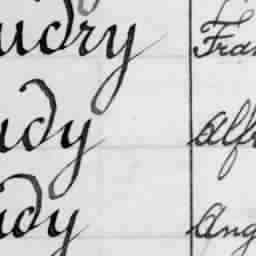 udry Fran
udy Alfr
udy Ang